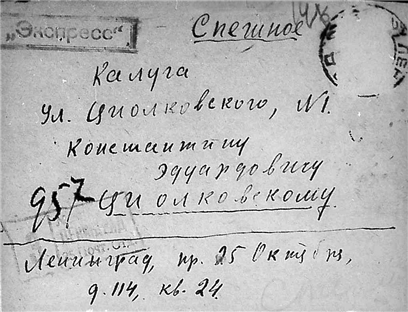 „Экспресс“.
Спешное
Калуга
ул. Циолковского, N1.
Константину
Эдуардовичу
957 Циолковскому
Ленинград, пр. 25 Октября,
д. 114, кв. 24